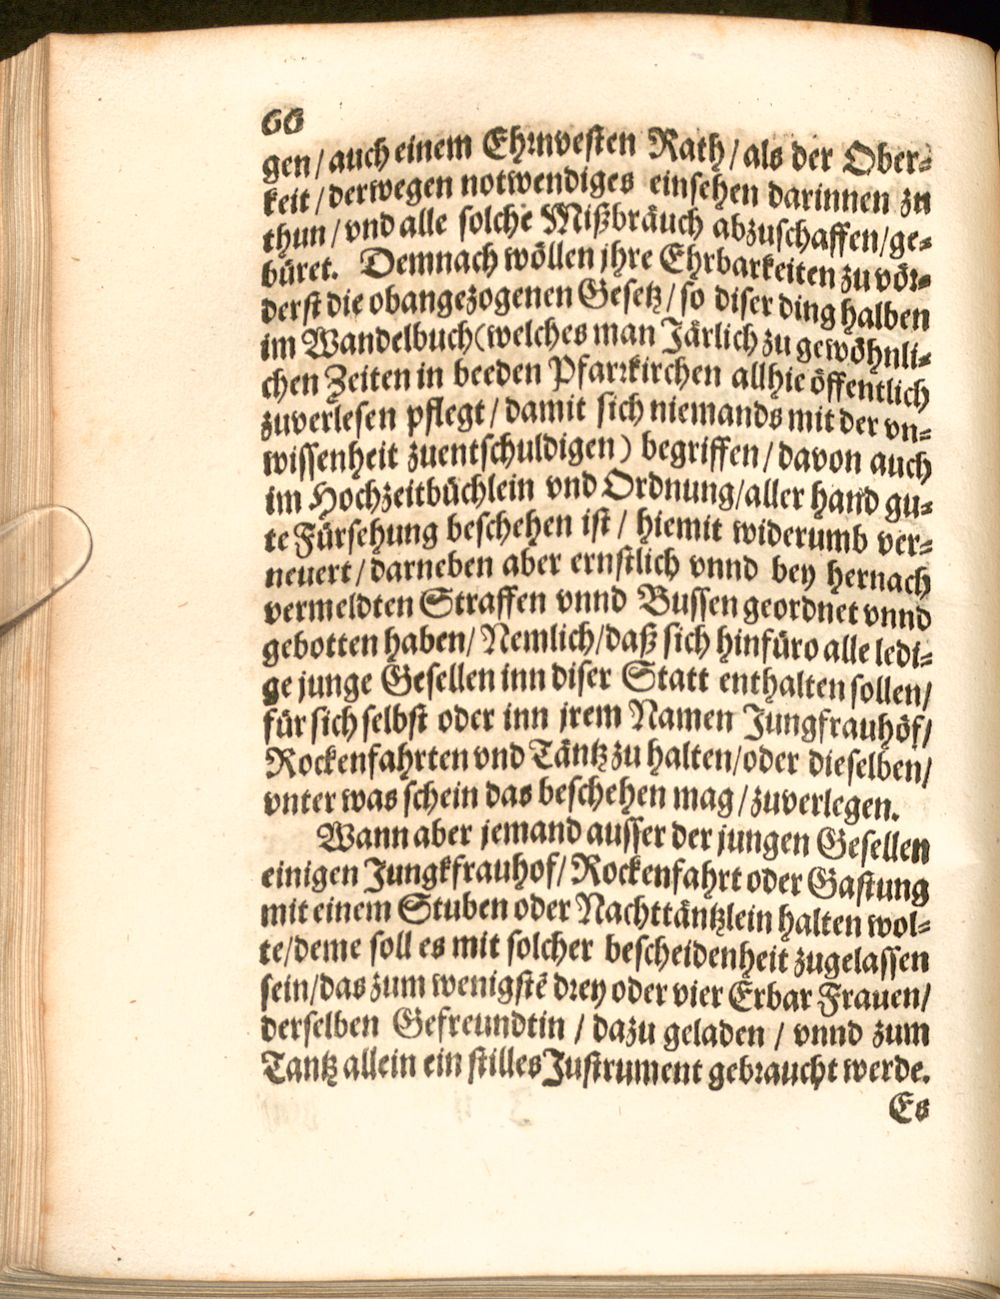 66
gen/ auch einem Ehrnvesten Rath/ als der Ober-
keit/ derwegen notwendiges einsehen darinnen zu
thun/ vnd alle solche Mißbräuch abzuschaffen/ ge-
büret. Demnach wöllen jhre Ehrbarkeiten zu vör-
derst die obangezogenen Gesetz/ so diser ding halben
im Wandelbuch (welches man Järlich zu gewöhnli-
chen Zeiten in beeden Pfarrkirchen allhie öffentlich
zuverlesen pflegt/ damit sich niemands mit der vn-
wissenheit zuentschuldigen) begriffen/ davon auch
im Hochzeitbüchlein vnd Ordnung/ aller hand gu-
te Fürsehung beschehen ist/ hiemit widerumb ver-
neuert/ darneben aber ernstlich vnnd bey hernach
vermeldten Straffen vnnd Bussen geordnet vnnd
gebotten haben/ Nemlich/ daß sich hinfüro alle ledi-
ge junge Gesellen inn diser Statt enthalten sollen/
für sich selbst oder inn jrem Namen Jungfrauhöf/
Rockenfahrten vnd Täntz zu halten/ oder dieselben/
vnter was schein das beschehen mag/ zuverlegen.
Wann aber jemand ausser der jungen Gesellen
einigen Jungkfrauhof/ Rockenfahrt oder Gastung
mit einem Stuben oder Nachttäntzlein halten wol-
te/ deme soll es mit solcher bescheidenheit zugelassen
sein/ das zum wenigstẽ drey oder vier Erbar Frauen/
derselben Gefreundtin/ dazu geladen/ vnnd zum
Tantz allein ein stilles Justrument gebraucht werde.
Es